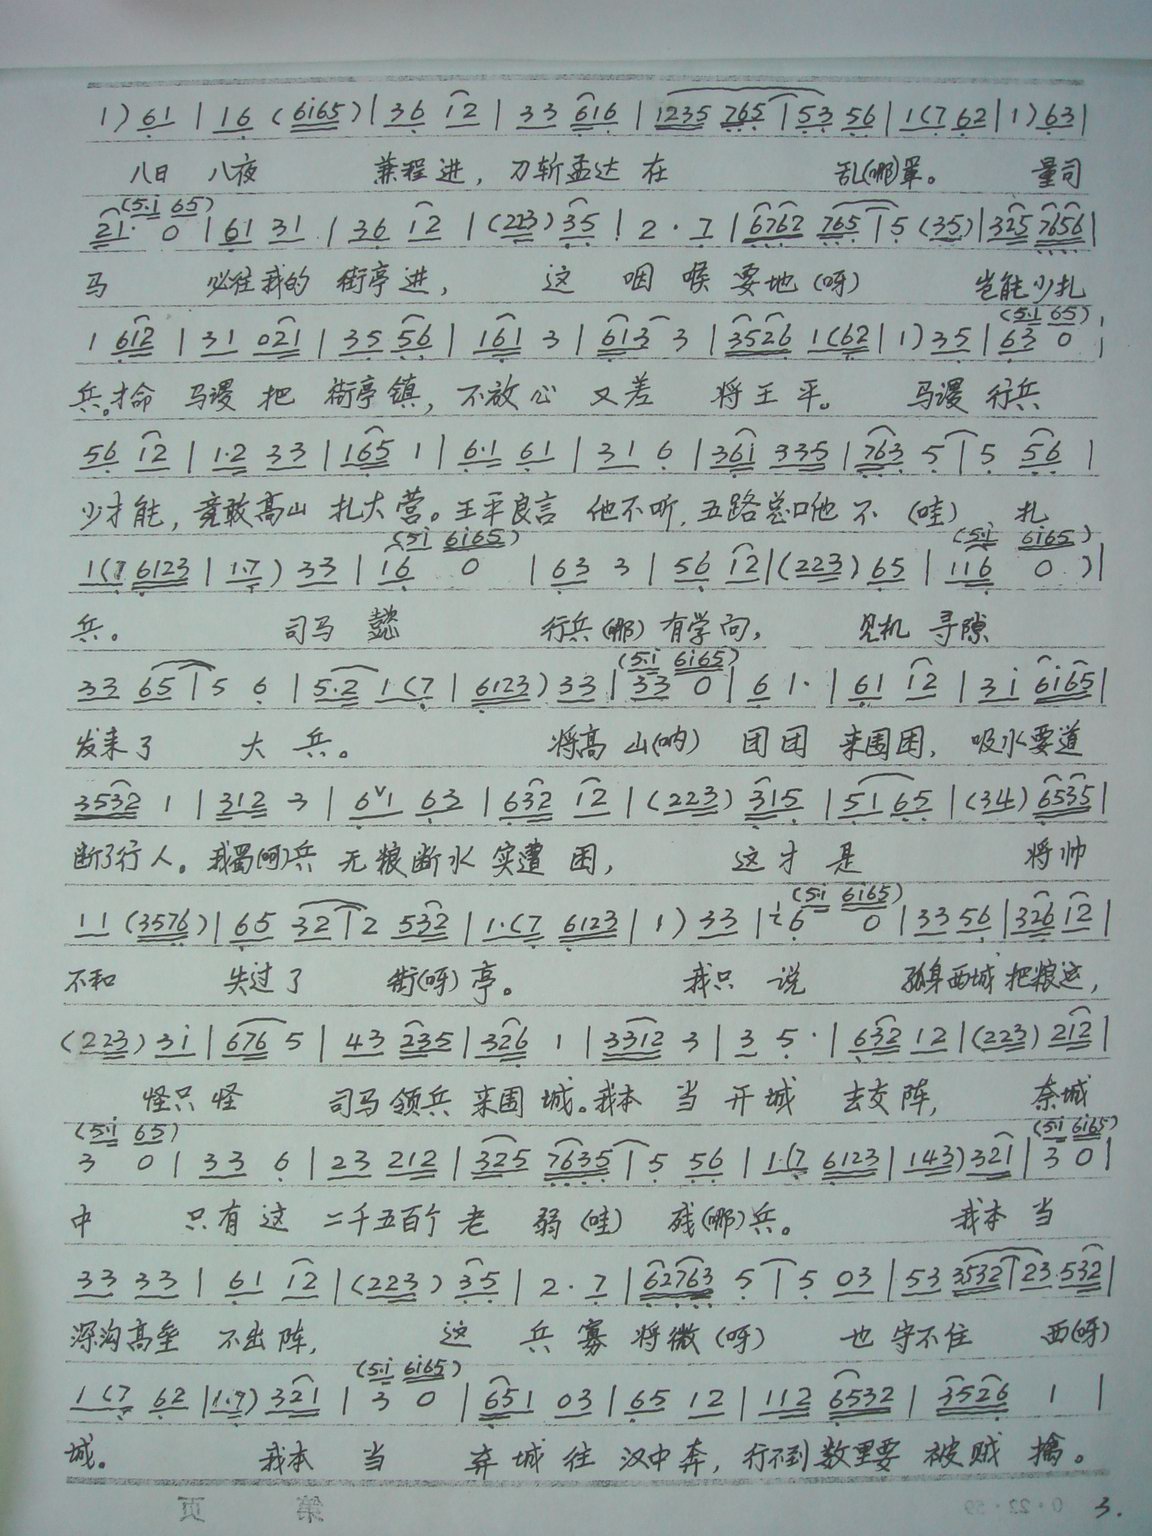 1) 61 | 16 (6i65) | 36 12 | 33 616 | 1235 765 | 53 56 | 1(7 62 | 1) 63 |
八日 八夜 兼程进, 刀斩孟达在 乱(哪)军。 量司
(5·i 65)
21· 0 | 61 31 | 36 12 | (223) 35 | 2·7 | 6762 765 | 5 (35) | 325 7656 |
马 必往我的 街亭进, 这 咽喉要地(呀) 岂能少扎
(5·i 65)
1 612 | 31 021 | 35 56 | 161 3 | 613 3 | 3526 1(62 | 1) 35 | 63 0 |
兵。才命 马谡 把 街亭镇, 不放心 又差 将王平。 马谡 行兵
56 12 | 1·2 33 | 165 1 | 6·1 61 | 31 6 | 36i 335 | 763 5 | 5 56 |
少才能, 竟敢高山 扎大营。王平良言 他不听, 五路总口他不(哇) 扎
(5i 6i65) (5·i 6i65)
1(7 6123 | 1·7) 33 | 16 0 | 63 3 | 56 12 | (223) 65 | 116 0 ) |
兵。 司马 懿 行兵(哪)有学问, 见机寻隙
(5·i 6i65)
33 65 | 5 6 | 5·2 1(7 | 6123) 33 | 33 0 | 6 1· | 61 12 | 3i 6i65 |
发来了 大 兵。 将高山(呐) 团团 来围困, 吸水要道
3532 1 | 312 3 | 6ˇ1 63 | 632 12 | (223) 315 | 51 65 | (34) 6535 |
断了行人。我蜀(呵)兵 无粮断水 实遭困, 这才是 将帅
(5·i 6i65)
11 (3576) | 65 32 | 2 532 | 1·(7 6123 | 1) 33 | 6 0 | 33 56 | 326 12 |
不和 失过了 街(呀)亭。 我只 说 孤身西城把粮运,
(223) 3i | 676 5 | 43 235 | 326 1 | 3312 3 | 3 5· | 632 12 | (223) 212 |
怪只怪 司马领兵 来围城。我本当 开城 去交阵, 奈城
(5·i 65) (5·i 6i65)
3 0 | 33 6 | 23 212 | 325 7635 | 5 56 | 1·(7 6123 | 143) 321 | 3 0 |
中 只有这 二千五百个老弱(哇) 残(哪)兵。 我本当
33 33 | 61 12 | (223) 35 | 2·7 | 62763 5 | 5 03 | 53 3532 | 23 532 |
深沟高垒 不出阵, 这 兵寡将微(呀) 也守不住 西(呀)
(5·i 6i65)
1 (7 62 | 1·7) 321 | 3 0 | 651 03 | 65 12 | 112 6532 | 3526 1 |
城。 我本当 弃城往 汉中奔, 行不到数里要 被贼擒。
第 页
0·22·59
3.